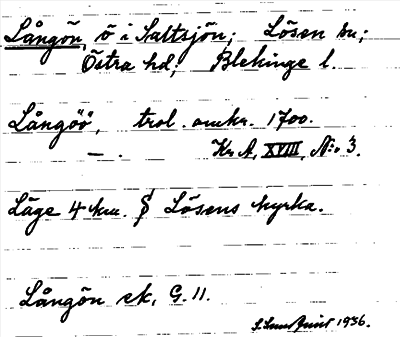 Långön, ö i Saltsjön; Lösen sn;
Östra hd, Blekinge l.
Långöö, trol. omkr. 1700.
— . Kr. A, XVIII, N:o 3.
Läge 4 km. S Lösens kyrka.
Långön ek, G. 11.
S. Sundquist 1936.